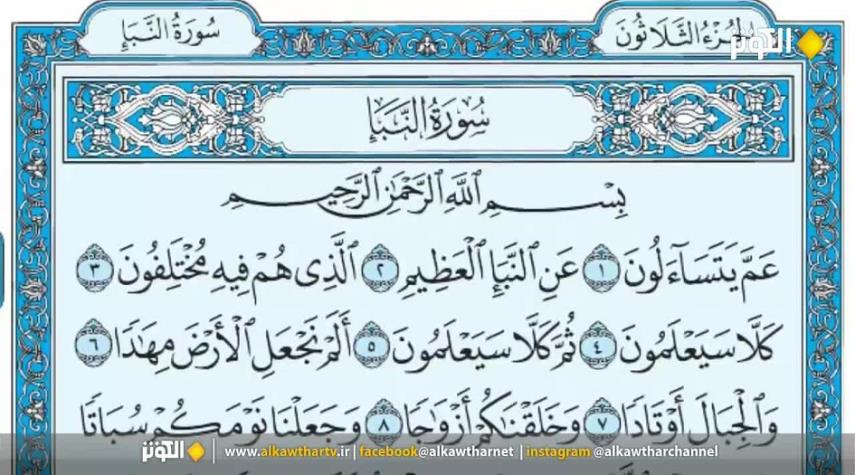 سُورَةُ النَّبَإِ
الجُزْءُ الثَّلَاثُونَ
الكوثر
سُورَةُ النَّبَإِ
بِسْمِ اللَّهِ الرَّحْمَٰنِ الرَّحِيمِ
عَمَّ يَتَسَآءَلُونَ ١ عَنِ النَّبَإِ الْعَظِيمِ ٢ الَّذِى هُمْ فِيهِ مُخْتَلِفُونَ ٣
كَلَّا سَيَعْلَمُونَ ٤ ثُمَّ كَلَّا سَيَعْلَمُونَ ٥ أَلَمْ نَجْعَلِ الْأَرْضَ مِهَٰدًا ٦
وَالْجِبَالَ أَوْتَادًا ٧ وَخَلَقْنَٰكُمْ أَزْوَٰجًا ٨ وَجَعَلْنَا نَوْمَكُمْ سُبَاتًا
الكوثر www.alkawthartv.ir | facebook@alkawtharnet | instagram @alkawtharchannel